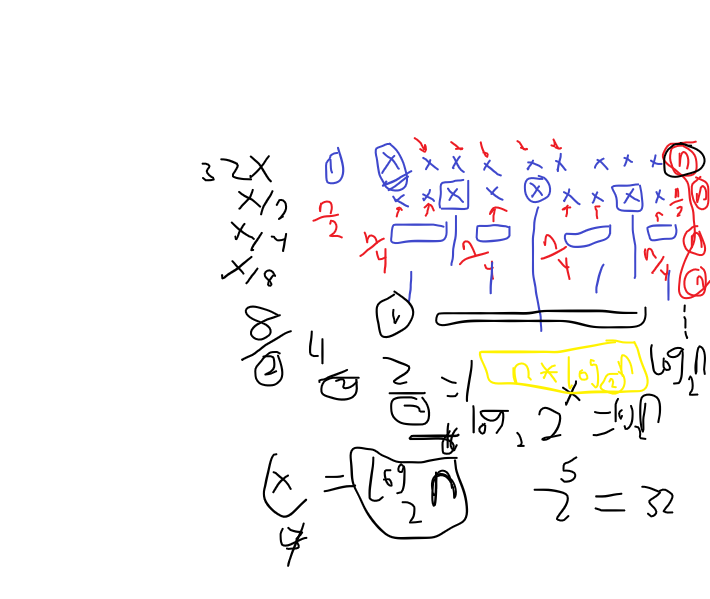 32X 1 X x x x x x x x x n
X/2 n/2 x x X x x x x X x n/2 n
X/4 n/4 n/4 n/4 n/4 n
X/8 n
8/2 4/2 2/2 = 1 n * log₂n log₂n
log₂ 2^x = log₂n
x = log₂ n 2^5 = 32